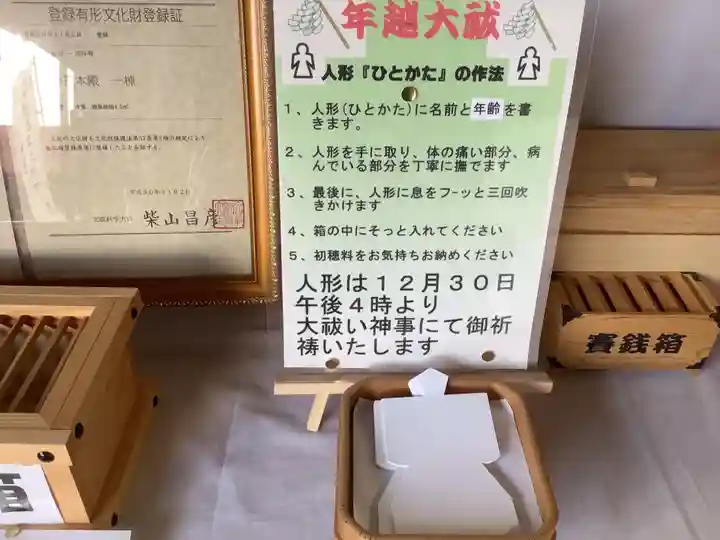 登録有形文化財登録証
本殿 一棟
柴山昌彦
年越大祓
人形『ひとかた』の作法
1、人形(ひとかた)に名前と年齢を書
きます。
2、人形を手に取り、体の痛い部分、病
んでいる部分を丁寧に撫でます
3、最後に、人形に息をフーッと三回吹
きかけます
4、箱の中にそっと入れてください
5、初穂料をお気持ちお納めください
人形は12月30日
午後4時より
大祓い神事にて御祈
祷いたします
賽銭箱